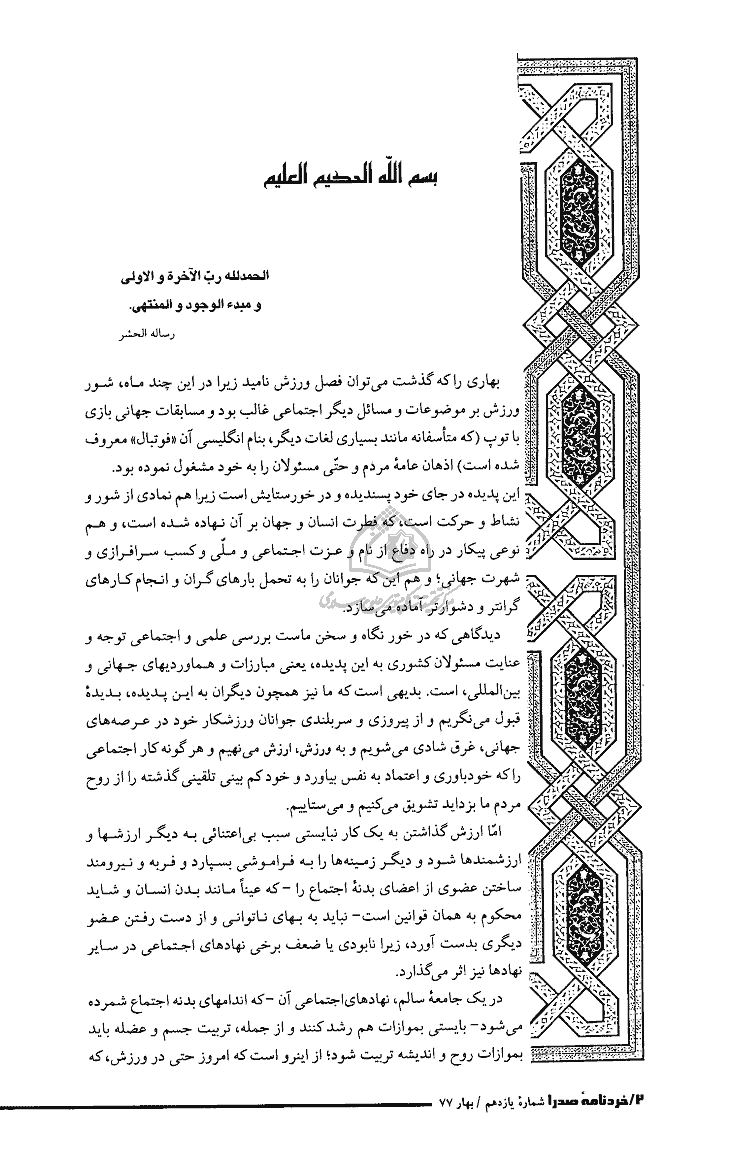 بسم اللّه الحکیم العلیم
الحمدلله ربّ الآخرة و الاولی
و مبدء الوجود و المنتهی.
رساله الحشر
بهاری را که گذشت می‌توان فصل ورزش نامید زیرا در این چند ماه، شور
ورزش بر موضوعات و مسائل دیگر اجتماعی غالب بود و مسابقات جهانی بازی
با توپ (که متأسفانه مانند بسیاری لغات دیگر، بنام انگلیسی آن «فوتبال» معروف
شده است) اذهان عامهٔ مردم و حتّی مسئولان را به خود مشغول نموده بود.
این پدیده در جای خود پسندیده و در خورستایش است زیرا هم نمادی از شور و
نشاط و حرکت است، که فطرت انسان و جهان بر آن نهاده شده است، و هم
نوعی پیکار در راه دفاع از نام و عزت اجتماعی و ملّی و کسب سرافرازی و
شهرت جهانی؛ و هم این که جوانان را به تحمل بارهای گران و انجام کارهای
گرانتر و دشوارتر آماده می‌سازد.
دیدگاهی که در خور نگاه و سخن ماست بررسی علمی و اجتماعی توجه و
عنایت مسئولان کشوری به این پدیده، یعنی مبارزات و هماوردیهای جهانی و
بین‌المللی، است. بدیهی است که ما نیز همچون دیگران به این پدیده، بدیدهٔ
قبول می‌نگریم و از پیروزی و سربلندی جوانان ورزشکار خود در عرصه‌های
جهانی، غرق شادی می‌شویم و به ورزش، ارزش می‌نهیم و هر گونه کار اجتماعی
را که خودباوری و اعتماد به نفس بیاورد و خود کم بینی تلقینی گذشته را از روح
مردم ما بزداید تشویق می‌کنیم و می‌ستاییم.
امّا ارزش گذاشتن به یک کار نبایستی سبب بی‌اعتنائی به دیگر ارزشها و
ارزشمندها شود و دیگر زمینه‌ها را به فراموشی بسپارد و فربه و نیرومند
ساختن عضوی از اعضای بدنهٔ اجتماع را –که عیناً مانند بدن انسان و شاید
محکوم به همان قوانین است– نباید به بهای ناتوانی و از دست رفتن عضو
دیگری بدست آورد، زیرا نابودی یا ضعف برخی نهادهای اجتماعی در سایر
نهادها نیز اثر می‌گذارد.
در یک جامعهٔ سالم، نهادهای‌اجتماعی آن –که اندامهای بدنه اجتماع شمرده
می‌شود– بایستی بموازات هم رشد کنند و از جمله، تربیت جسم و عضله باید
بموازات روح و اندیشه تربیت شود؛ از اینرو است که امروز حتی در ورزش، که
۲/خردنامهٔ صدرا شمارهٔ یازدهم / بهار ۷۷